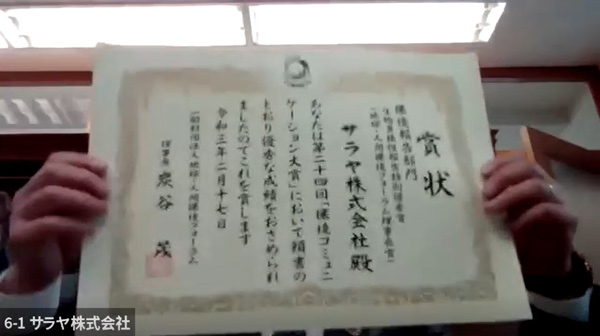 賞状
環境報告部門
生物多様性報告特別優秀賞
(地球・人間環境フォーラム理事長賞)
サラヤ株式会社殿
あなたは第二十四回「環境コミュニ
ケーション大賞」において頭書の
とおり優秀な成績をおさめられ
ましたのでこれを賞します
令和三年二月十七日
一般財団法人地球・人間環境フォーラム
理事長 炭谷 茂
6-1 サラヤ株式会社